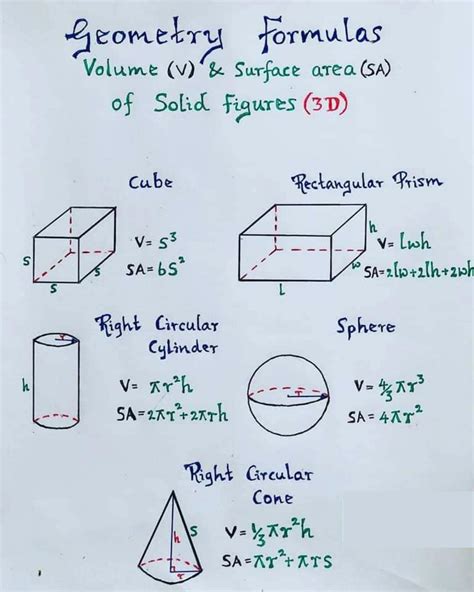 Geometry Formulas
Volume (V) & Surface area (SA)
of Solid Figures (3D)
Cube
s
s
s
V= s³
SA= 6s²
Rectangular Prism
h
w
l
V= lwh
SA=2lw+2lh+2wh
Right Circular
Cylinder
r
h
V= πr²h
SA=2πr²+2πrh
Sphere
r
V= 4/3 πr³
SA= 4πr²
Right Circular
Cone
h
s
r
V= 1/3 πr²h
SA=πr²+πrs